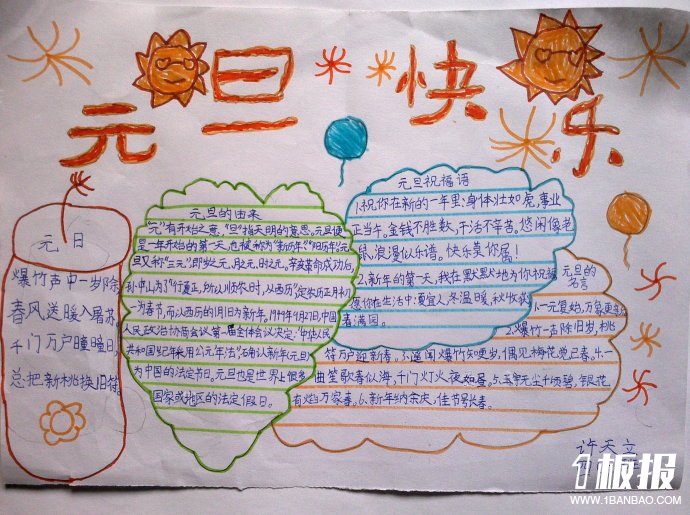 元旦快乐
元日
爆竹声中一岁除
春风送暖入屠苏
千门万户曈曈日
总把新桃换旧符
元旦的由来
"元"有开始之意,"旦"指天明的意思。元旦便
是一年开始的第一天,也被称为"新历年""阳历年"。元
旦又称"三元",即岁之元,月之元,时之元。辛亥革命成功后,
孙中山为了"行夏正,所以顺农时,从西历"定农历正月初
一为春节,而以西历的1月1日为新年,1949年9月27日,中国
人民政治协商会议第一届全体会议决定:"中华人民
共和国纪年采用公元年法",
为中国的法定节日。元旦也是世界上很多
国家或地区的法定假日。
元旦祝福语
1.祝你在新的一年里:身体壮如虎,事业
正当午。金钱不胜数,干活不辛苦。悠闲像老
鼠,浪漫似乐谱。快乐莫你属!
2.新年的第一天,我在默默地为你祝福
愿你在生活中:夏宜人,冬温暖,秋收获
春满园。
元旦的
名言
1.一元复始,万象更新
2.爆竹一声除旧岁,桃
符万户迎新春。3.遥闻爆竹知更岁,偶见梅花觉已春。4.一
曲笙歌春似海,千门灯火夜如昼。5.玉宇无尘千顷碧,银花
有焰万家春。6.新年纳余庆,佳节号长春。
许天立
1板报
WWW.1BANBAO.COM